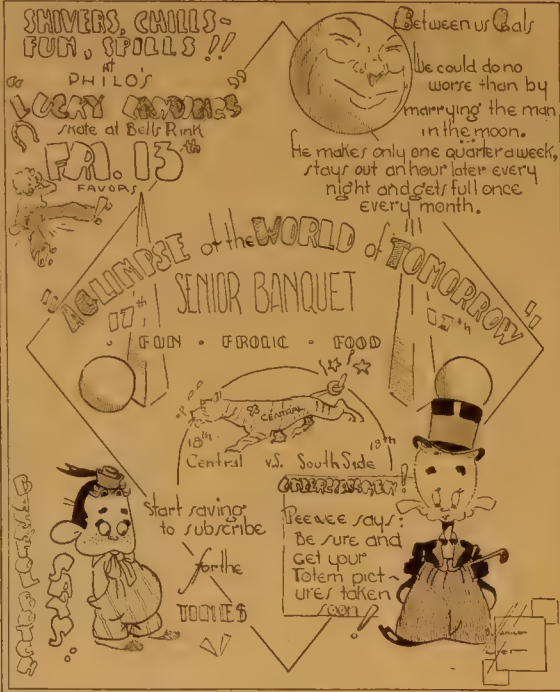 SHIVERS, CHILLS -
FUN, SPILLS !!
AT
PHILO'S
LUCKY
Skate at Bell's Rink
FRI. 13th
FAVORS
Between us Gals
We could do no
worse than by
marrying the man
in the moon.
He makes only one quarter a week,
stays out an hour later every
night and gets full once
every month.
"A GLIMPSE of the WORLD of TOMORROW"
17th SENIOR BANQUET 17th
FUN · FROLIC · FOOD
CENTRAL
18th 18th
Central v.s. South Side
Start saving
to subscribe
for the
TIMES
UNDERCLASSMEN!
PeeWee says:
Be sure and
get your
Totem pict -
ures taken
soon!
SAYS: